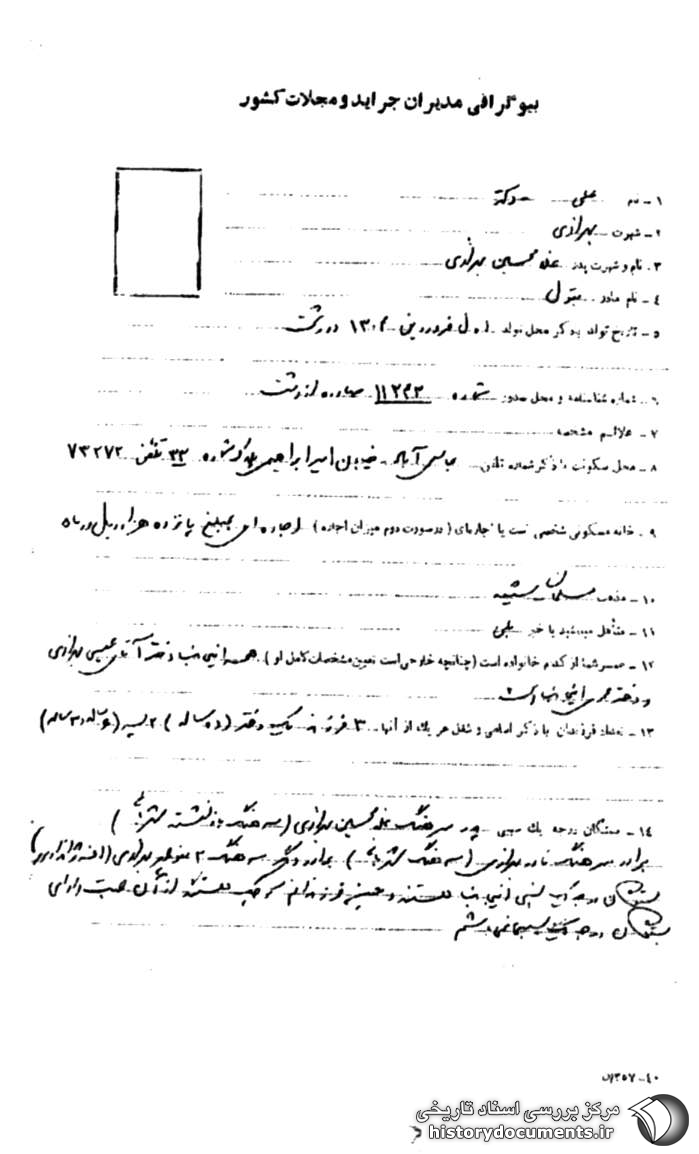 بیوگرافی مدیران جراید و مجلات کشور
۱ - نام علی - دکتر
۲ - شهرت بهزادی
۳ - نام و شهرت پدر غلامحسین بهزادی
۴ - نام مادر بتول
۵ - تاریخ تولد با ذکر محل تولد اول فروردین ۱۳۰۴ در رشت
۶ - شماره شناسنامه و محل صدور شماره ۱۱۲۴۳ صادره از رشت
۷ - علائم مشخصه
۸ - محل سکونت با ذکر شماره تلفن عباس آباد - خیابان امیر ابراهیمی شماره ۳۳ تلفن ۷۳۲۷۲
۹ - خانه مسکونی شخصی است یا اجاره‌ای ( در صورت دوم میزان اجاره ) اجاره ای بمبلغ پانزده هزار ریال در ماه
۱۰ - مذهب مسلمان شیعه
۱۱ - متأهل میباشید یا خیر بلی
۱۲ - همسر شما از کدام خانواده است ( چنانچه خارجی است تعیین مشخصات کامل او ) همسر اینجانب دختر آقای عیسی بهزادی
و دختر عموی اینجانب است
۱۳ - تعداد فرزندان با ذکر اسامی و شغل هر یک از آنها ۳ فرزند یک دختر (ده ساله) ۲ پسر (۶ ساله و ۳ ساله)
۱۴ - بستگان درجه یک سببی پدر سرهنگ غلامحسین بهزادی (سرهنگ بازنشسته
برادر سرهنگ نادر بهزادی (سرهنگ برادر دیگر سرهنگ ۲ منوچهر بهزادی (افسر ژاندارمری)
بستگان درجه یک نسبی اینجانب هستند و همین
بستگان درجه یک سببی نمیباشم
۳۵۷-۴۰
مرکز بررسی اسناد تاریخی
historydocuments.ir